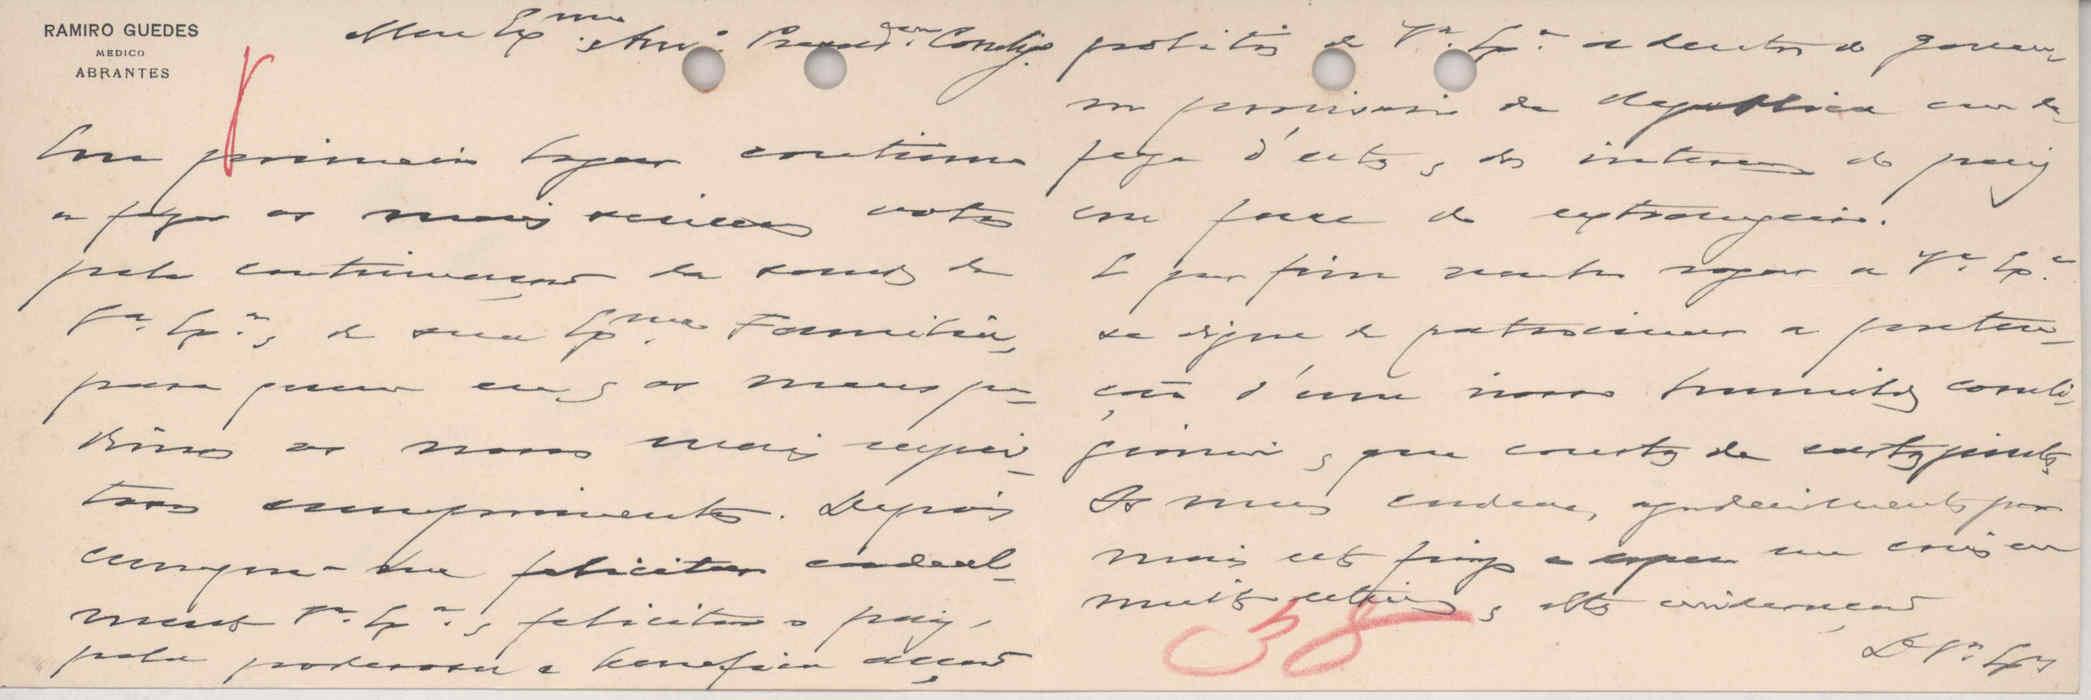 RAMIRO GUEDES
MEDICO
ABRANTES
Meu Exmo. Amo.
Em primeiro logar continuo
a fazer os mais sinceros votos
pela continuação da saude de
Va. Exa. e de sua Exma. Familia,
para quem eu e os meus pe-
dimos os nossos mais respei-
tosos cumprimentos. Depois
cumpre-me felicitar cordeal-
mente Va. Exa. e felicitar o paiz,
pela poderosa e benefica acção
politica de Va. Exa. a dentro do gover-
no provisorio da Republica em de-
feza d'esta e dos interesses do paiz
em face do extrangeiro.
E por fim venho rogar a Va. Exa.
se digne de patrocinar a preten-
ção d'um nosso humilde correli-
gionario, que consta da carta junta,
Os meus cordeaes agradecimentos por
mais este e creia-me com
muita estima e alta consideração
De Va. Exa.
38